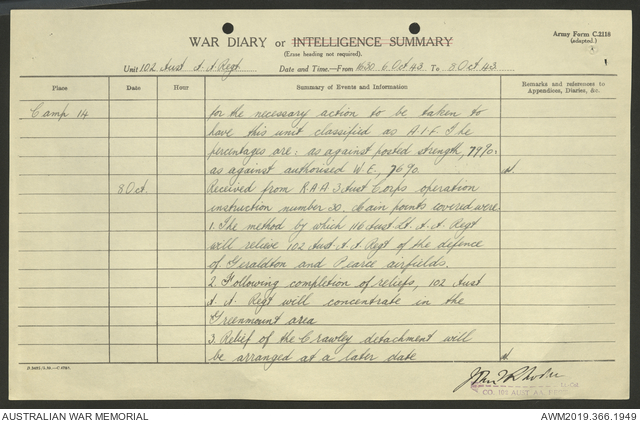 Army Form C.2118
(adapted.)
WAR DIARY or INTELLIGENCE SUMMARY
(Erase heading not required).
Unit 102 Aust A. A Regt Date and Time.—From 1630 6 Oct 43 To 8 Oct 43
Place Date Hour Summary of Events and Information Remarks and references to Appendices, Diaries, &c.
Camp 14 for the necessary action to be taken to
have this unit classified as A.I.F. The
percentages are: as against posted strength, 79%.
as against authorised W.E., 76%.
8 Oct. Received from R.A.A 3 Aust Corps operation
instruction number 20. Main points covered were:
1. The method by which 116 Aust Lt. A. A. Regt
will relieve 102 Aust A.A Regt of the defence
of Geraldton and Pearce airfields.
2. Following completion of reliefs, 102 Aust
A. A. Regt will concentrate in the
Greenmount area
3. Relief of the Crawley detachment will
be arranged at a later date
Lt-Col
CO. 102 AUST A.A.
AUSTRALIAN WAR MEMORIAL AWM2019.366.1949